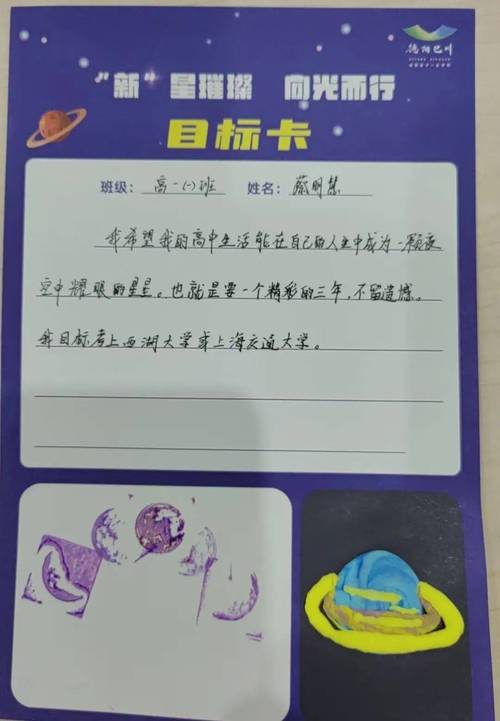 德阳巴川
"新"星璀璨 向光而行
目标卡
班级：高一(一)班 姓名：蔡明慧
我希望我的高中生活能在自己的人生中成为一颗夜
空中耀眼的星星。也就是要一个精彩的三年，不留遗憾。
我目标考上西湖大学或上海交通大学。